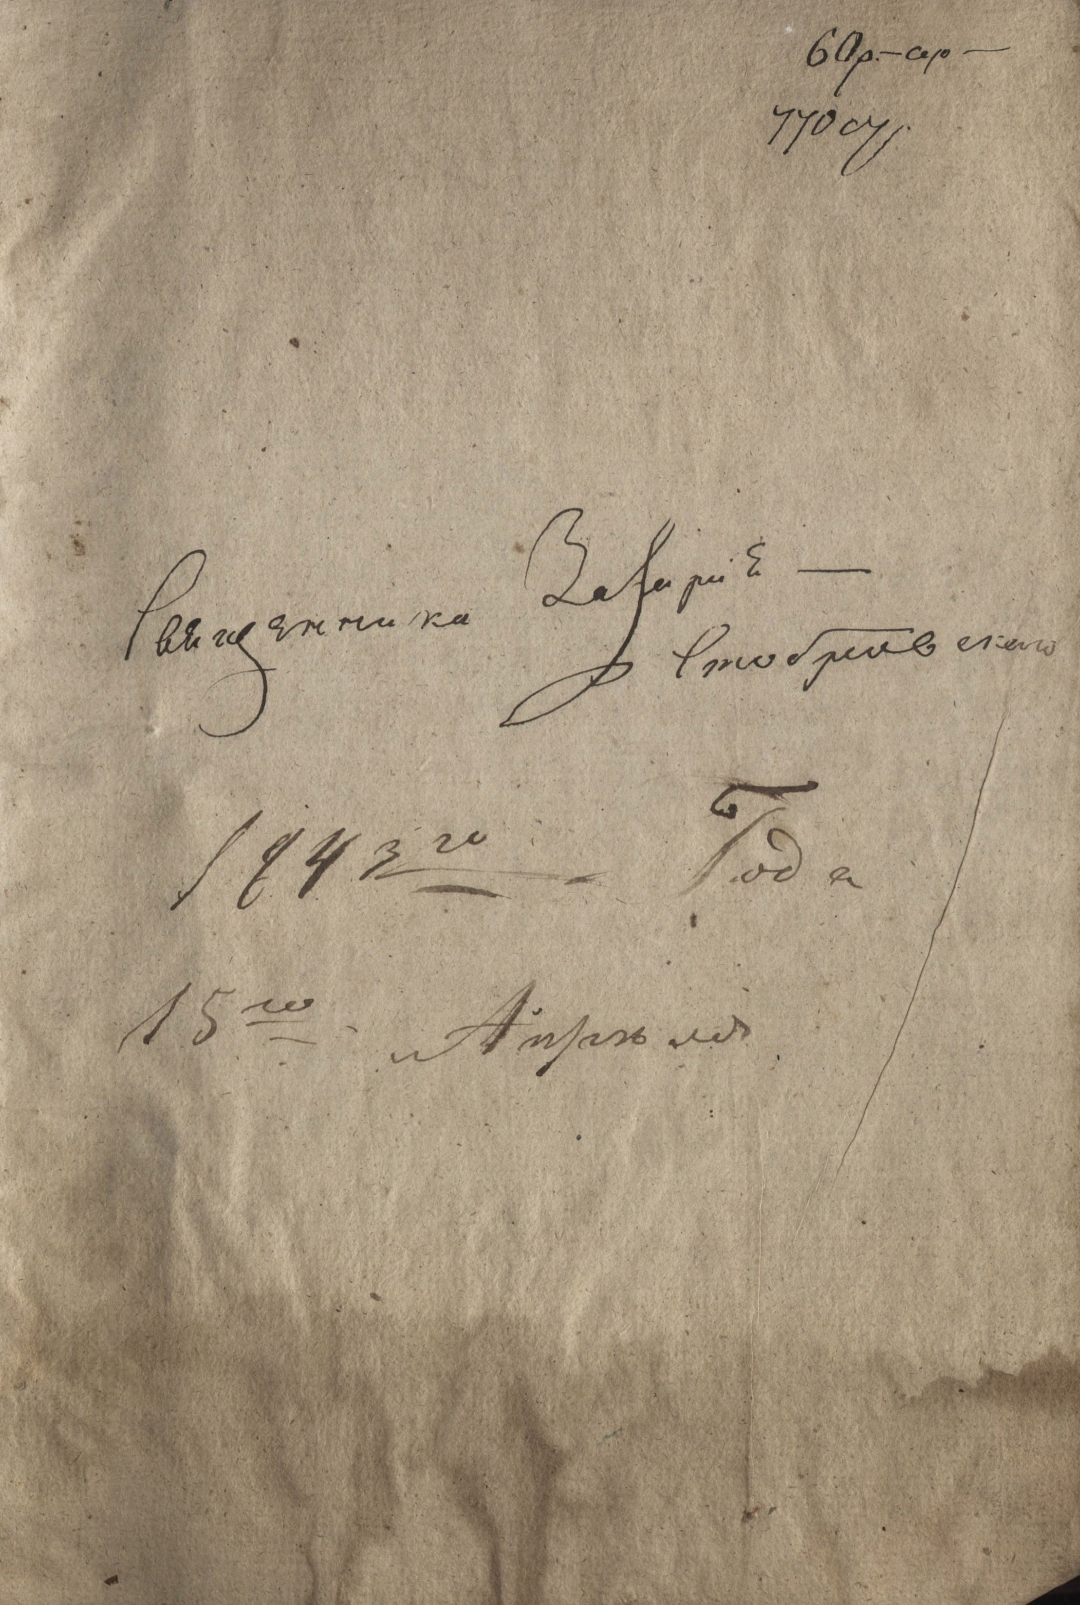 60р.-ар-
770
Священника Захарiя —
Стобровского
1843го Года
15го Апреля